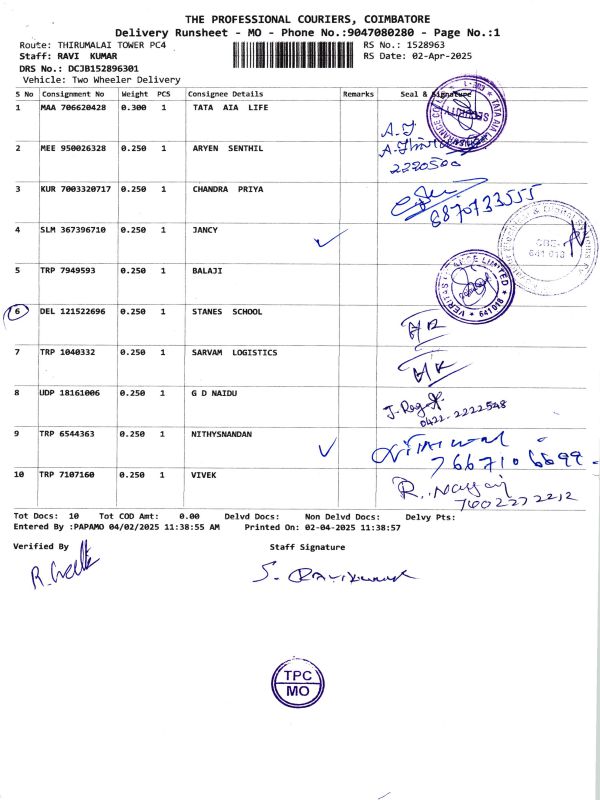 THE PROFESSIONAL COURIERS, COIMBATORE
Delivery Runsheet - MO - Phone No.:9047080280 - Page No.:1
Route: THIRUMALAI TOWER PC4 RS No.: 1528963
Staff: RAVI KUMAR RS Date: 02-Apr-2025
DRS No.: DCJB152896301
Vehicle: Two Wheeler Delivery
S No Consignment No Weight PCS Consignee Details Remarks Seal & Signature
1 MAA 706620428 0.300 1 TATA AIA LIFE
2 MEE 950026328 0.250 1 ARYEN SENTHIL
2220500
3 KUR 7003320717 0.250 1 CHANDRA PRIYA
8870733555
4 SLM 367396710 0.250 1 JANCY
CBE-
641 018
5 TRP 7949593 0.250 1 BALAJI
VERITAS FINANCE LIMITED * 641018 *
6 DEL 121522696 0.250 1 STANES SCHOOL
7 TRP 1040332 0.250 1 SARVAM LOGISTICS
8 UDP 18161006 0.250 1 G D NAIDU
0422-2222548
9 TRP 6544363 0.250 1 NITHYSNANDAN
7667106699
10 TRP 7107160 0.250 1 VIVEK
7602272212
Tot Docs: 10 Tot COD Amt: 0.00 Delvd Docs: Non Delvd Docs: Delvy Pts:
Entered By :PAPAMO 04/02/2025 11:38:55 AM Printed On: 02-04-2025 11:38:57
Verified By Staff Signature
S. Ravikumar
TPC
MO